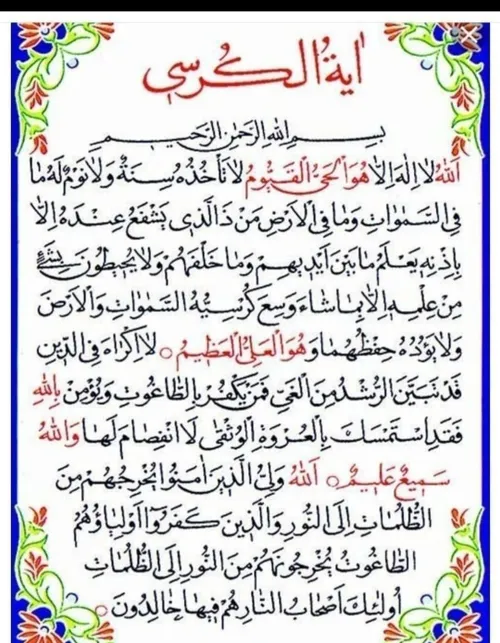 اٰیَةُ الْکُرْسِی
بِسْمِ اللهِ الرَّحْمٰنِ الرَّحِیمِ
اَللهُ لا اِلٰهَ اِلاّٰ هُوَ الْحَیُّ الْقَیُّومُ لا تَأْخُذُهُ سِنَةٌ وَلا نَوْمٌ لَهُ مٰا
فِی السَّمٰوٰاتِ وَمٰا فِی الْاَرْضِ مَنْ ذَا الَّذی یَشْفَعُ عِنْدَهُ اِلاّٰ
بِاِذْنِهِ یَعْلَمُ مٰا بَیْنَ اَیْدیهِمْ وَمٰا خَلْفَهُمْ وَلا یُحیطُونَ بِشَیْءٍ
مِنْ عِلْمِهِ اِلاّٰ بِمٰا شٰاءَ وَسِعَ کُرْسِیُّهُ السَّمٰوٰاتِ وَالْاَرْضَ
وَلا یَؤُدُهُ حِفْظُهُمٰا وَهُوَ الْعَلِیُّ الْعَظیمُ ○ لا اِکْرٰاهَ فِی الدّینِ
قَدْ تَبَیَّنَ الرُّشْدُ مِنَ الْغَیِّ فَمَنْ یَکْفُرْ بِالطّٰاغُوتِ وَیُؤْمِنْ بِاللهِ
فَقَدِ اسْتَمْسَکَ بِالْعُرْوَةِ الْوُثْقٰی لَا انْفِصٰامَ لَهٰا وَاللهُ
سَمیعٌ عَلیمٌ ○ اَللهُ وَلِیُّ الَّذینَ اٰمَنُوا یُخْرِجُهُمْ مِنَ
الظُّلُمٰاتِ اِلَی النُّورِ وَالَّذینَ کَفَرُوا اَوْلِیٰاؤُهُمُ
الطّٰاغُوتُ یُخْرِجُونَهُمْ مِنَ النُّورِ اِلَی الظُّلُمٰاتِ
اُولٰئِکَ اَصْحٰابُ النّٰارِ هُمْ فیهٰا خٰالِدُونَ ○